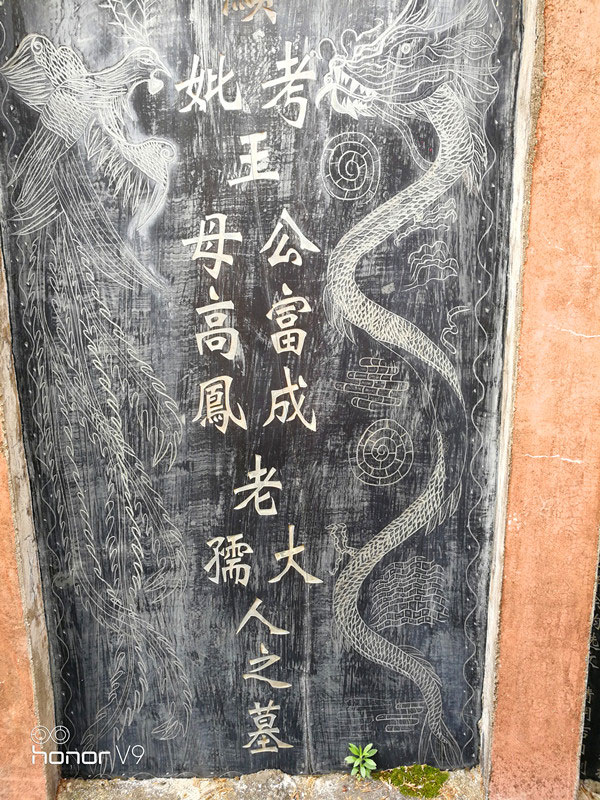 考
妣
王
公富成
母高鳳
老
大
孺
人之墓
honor V9